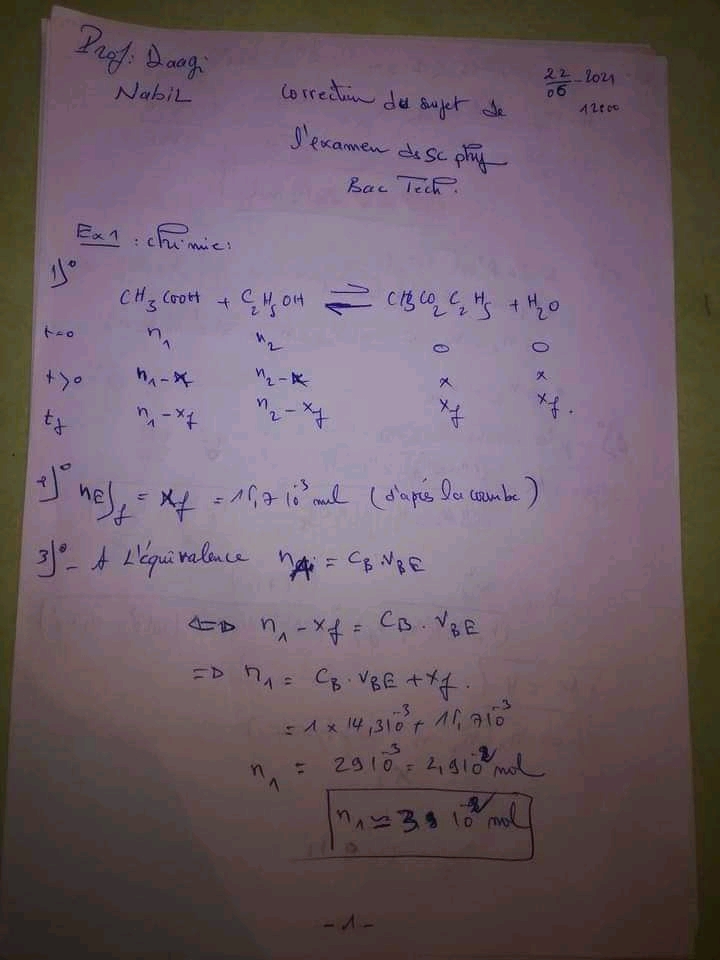 Prof: Daagi
Nabil
22/06-2021
12h00
Correction du sujet de
l'examen de Sc phy
Bac Tech.
Ex1: chimie:
1)°
CH3COOH + C2H5OH ⇌ CH3CO2C2H5 + H2O
t=0 n1 n2 0 0
t>0 n1-x n2-x x x
tf n1-xf n2-xf xf xf.
2)° nE)f = xf = 15,7 10^-3 mol (d'après la courbe)
3)°- A L'équivalence = CB.VBE
<=> n1-xf = CB.VBE
=> n1 = CB.VBE+xf.
= 1 x 14,3 10^-3 + 15,7 10^-3
n1 = 29 10^-3 = 2,9 10^-2 mol
n1 ≃ 10^-2 mol
-1-